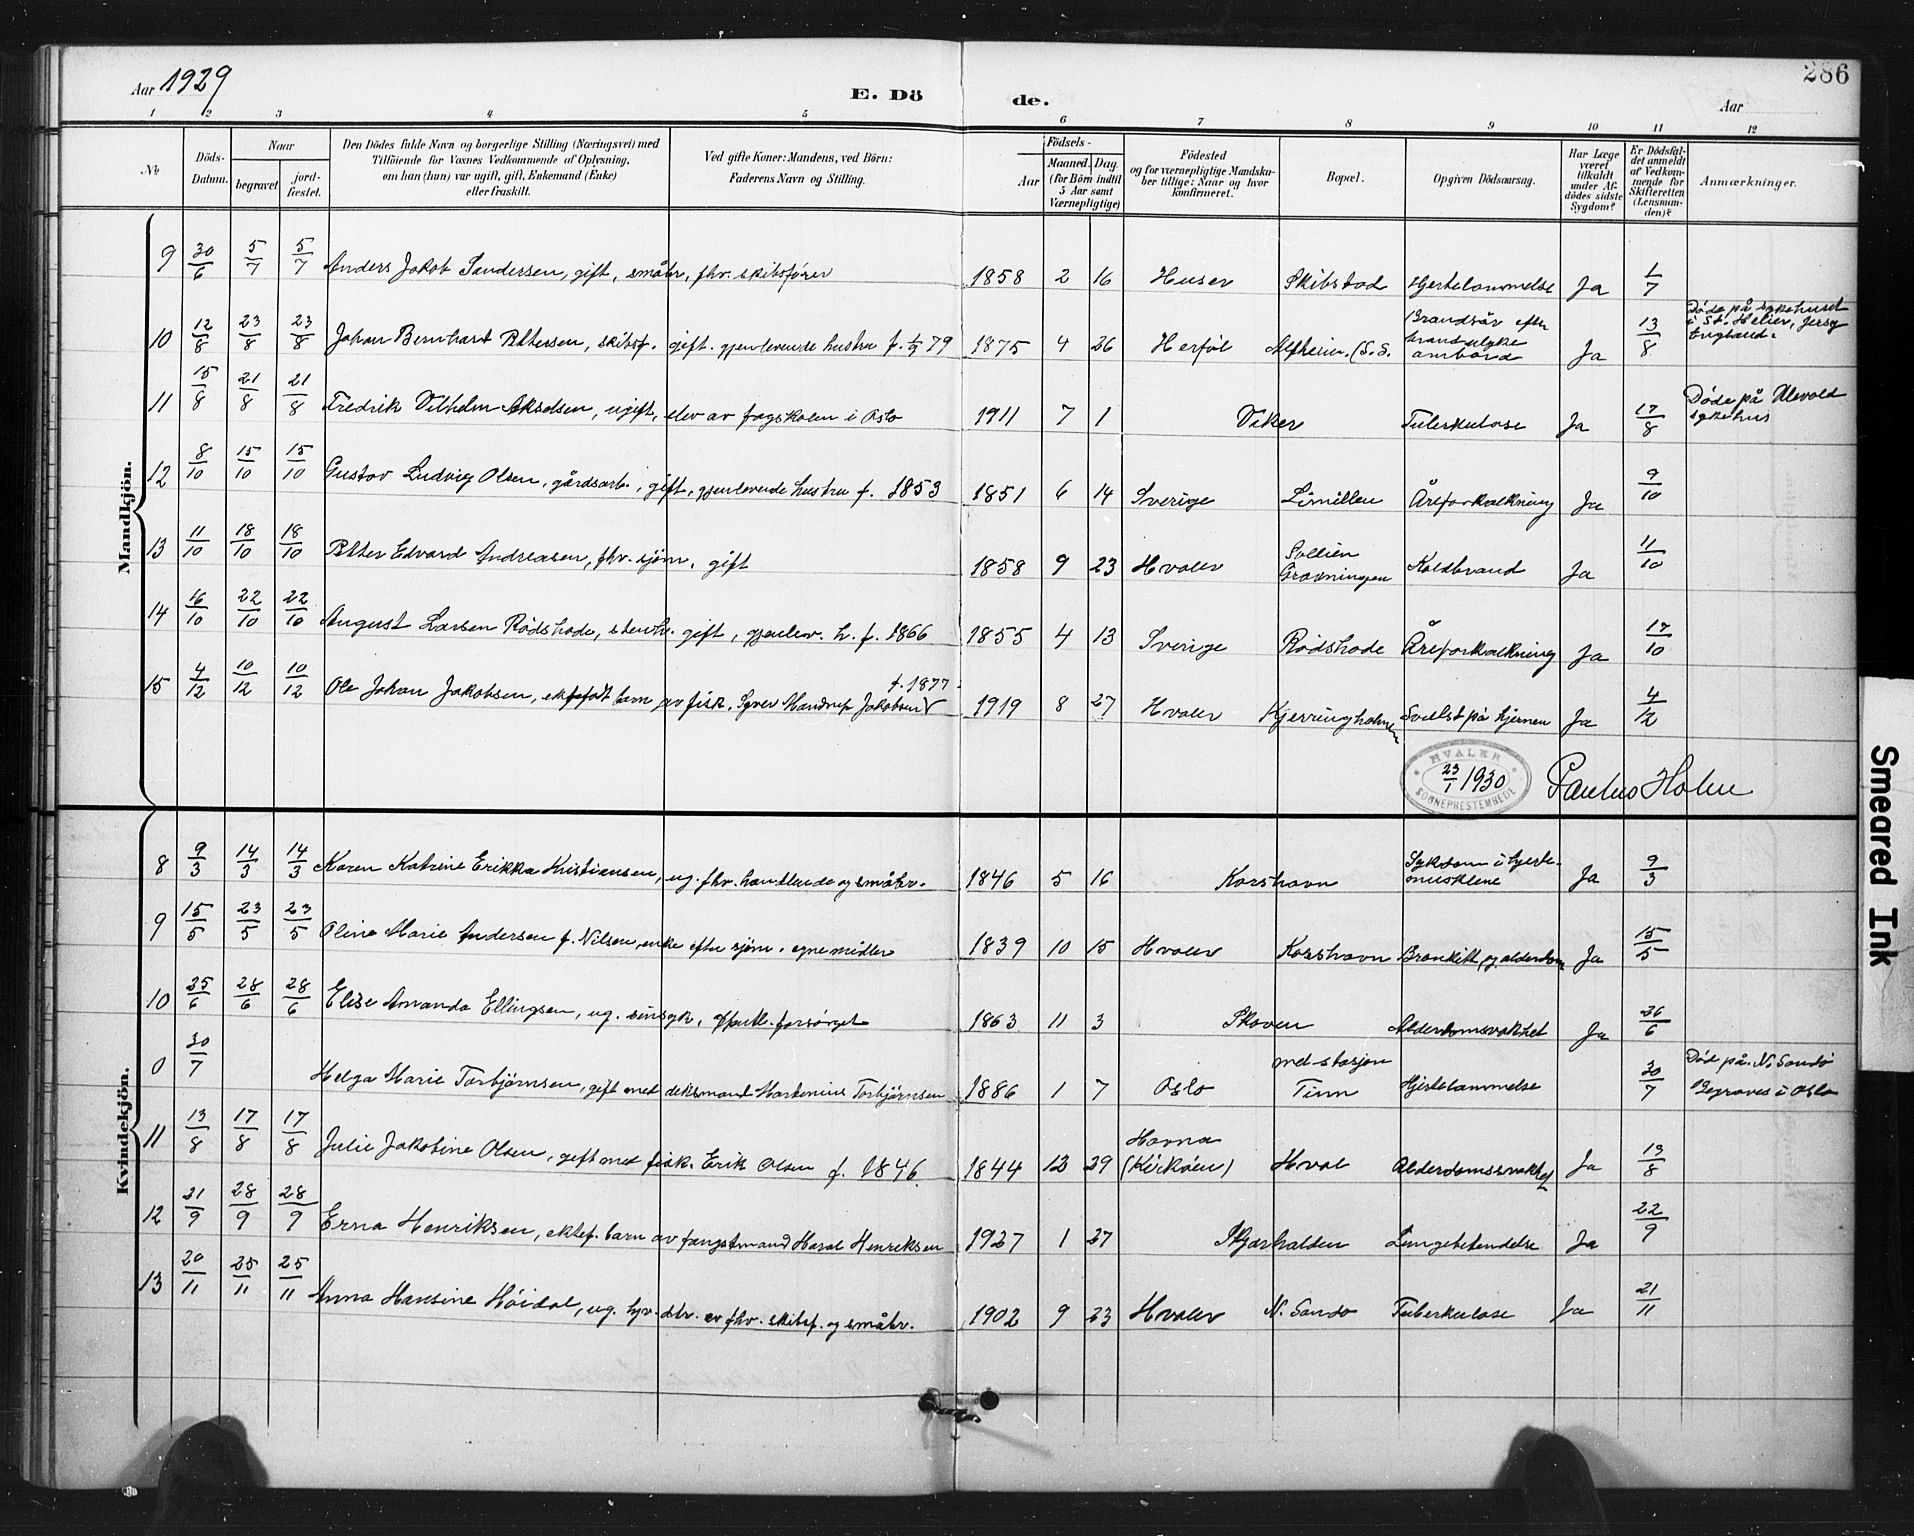 Aar 1929 E. Döde. Aar 286
1 2 3 4 5 6 7 8 9 10 11 12
No
Döds-Datum.
Naar
begravet
jord-fæstet.
Den Dödes fulde Navn og borgerlige Stilling (Næringsvei) med
Tilföiende for Voxnes Vedkommende af Oplysning,
om han (hun) var ugift, gift, Enkemand (Enke)
eller fraskilt.
Ved gifte Koner: Mandens, ved Börn:
Faderens Navn og Stilling.
Födsels-
Aar
Maaned. Dag.
(for Börn indtil
5 Aar samt
Værnepligtige)
Födested
og for værnepligtige Mandska-
ber tillige: Naar og hvor
konfirmeret.
Bopæl.
Opgiven Dödsaarsag.
Har Læge
været
tilkaldt
under Af-
dödes sidste
Sygdom?
Er Dödsfal-
det anmeldt
af Vedkom-
mende for
Skifteretten
(Lensman-
den)?
Anmærkninger.
Mandkjön.
9 30/6 5/7 5/7 Anders Jakob Sandersen, gift, småbr, fhv. skibsfører 1858 2 16 Huser Skibstad Hjertelammelse Ja 1/7
10 12/8 23/8 23/8 Johan Bernhart Pettersen, skibsf. gift. gjenlevende hustru f. 79 1875 4 26 Herføl Alfheim (S.S. Brandsår efter brandulyke ombord Ja 13/8 Døde på sykehuset i St. Helier, Jersey England.
11 15/8 21/8 21/8 Fredrik Vilhelm Akselsen, ugift, elev av fagskolen i Oslo 1911 7 1 Viker Tuberkulose Ja 17/8 Døde på Ulevold sykehus
12 8/10 15/10 15/10 Gustav Ludvig Olsen, gårdsarb., gift, gjenlevende hustru f. 1853 1851 6 14 Sverige Limillen Åreforkalkning Ja 9/10
13 11/10 18/10 18/10 Petter Edvard Andreasen, fhv. sjøm. gift 1858 9 23 Hvaler Sollien Gravningen Koldbrand Ja 11/10
14 16/10 22/10 22/10 August Larsen Rødshode, stenh. gift, gjenlev. h. f. 1866 1855 4 13 Sverige Rødshode Åreforkalkning Ja 17/10
15 4/12 10/12 10/12 Ole Johan Jakobsen, ektefødt barn av fisk. Syver Mandrup Jakobsen f. 1877. 1919 8 27 Hvaler Kjerringholmen Svulst på hjernen Ja 4/12
HVALER SOGNEPRESTEMBEDE
23/1 1930 Paulus Holm
Kvindekjön.
8 9/3 14/3 14/3 Karen Katrine Erikka Kristiansen, ug. fhv. handlende og småbr. 1846 5 16 Korshavn Sykdom i hjertemusklene Ja 9/3
9 15/5 23/5 23/5 Oline Marie Andersen f. Nilsen, enke efter sjøm. egne midler 1839 10 15 Hvaler Korshavn Bronkitt og alderdom Ja 15/5
10 25/6 28/6 28/6 Elise Amanda Ellingsen, ug. sinsyk, forsørget 1863 11 3 Skoven Alderdomsvakhet Ja 26/6
0 30/7 Helga Marie Torbjørnsen, gift med deksmand Martenius Torbjørnsen 1886 1 7 Oslo stasjon Tinn Hjertelammelse 30/7 Død på N. Sandø Begraves i Oslo
11 13/8 17/8 17/8 Julie Jakobine Olsen, gift med fisk. Erik Olsen f. 1846 1844 12 29 Havna (Kirkøen) Hval Alderdomssvakhet Ja 13/8
12 21/9 28/9 28/9 Erna Henriksen, ektef. barn av fangstmand Haral Henriksen 1927 1 27 Skjærhalden Lungebetendelse Ja 22/9
13 20/11 25/11 25/11 Anna Hansine Høidal, ug. hjv. dtr. av fhv. skibsf. og småbr. 1902 9 23 Hvaler N. Sandø Tuberkulose Ja 21/11
Smeared Ink